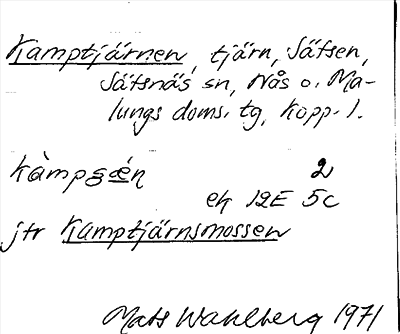 Kamptjärnen, tjärn, Säfsen,
Säfsnäs sn, Nås o. Ma-
lungs doms. tg, Kopp. l.
kàmpʂǽn 2
ek 12E 5c
jtr Kamptjärnsmossen
Mats Wahlberg 1971